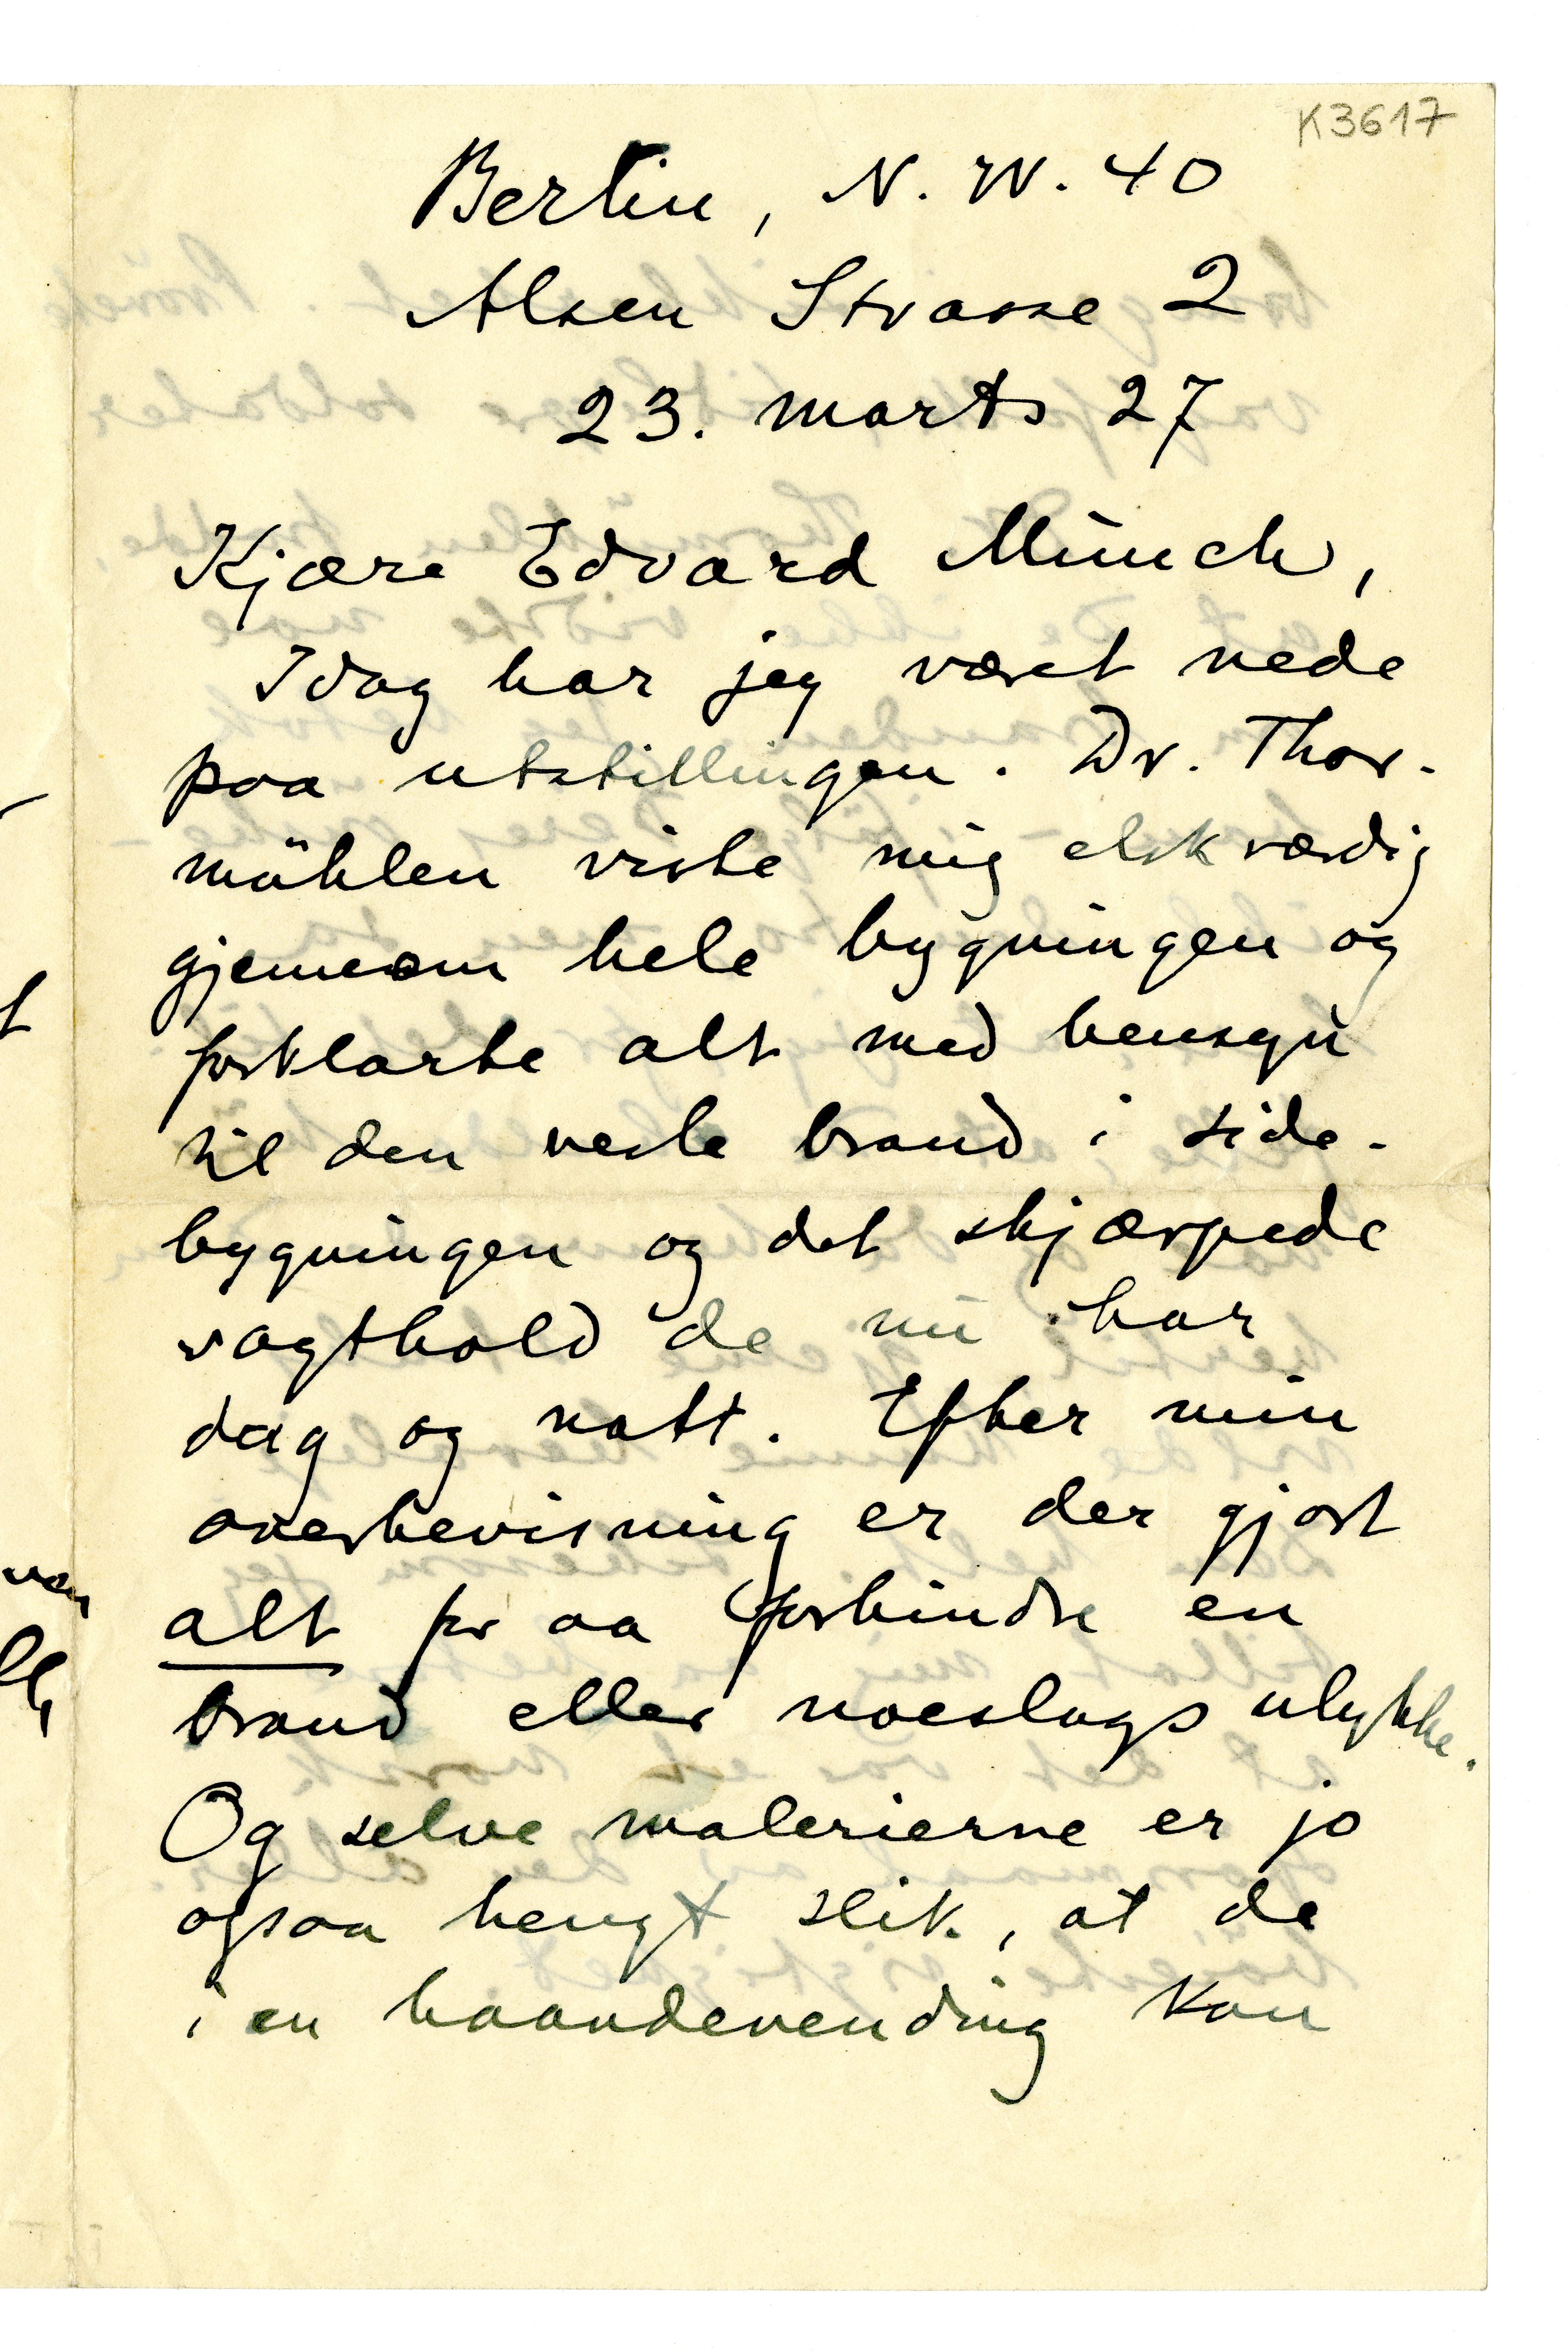 K3617
Berlin, N. W. 40
Alsen Strasse 2
23. marts 27
Kjære Edvard Münch,
Idag har jeg været nede
paa utstillingen. Dr. Thor-
mählen viste mig elskværdig
gjennem hele bygningen og
forklarte alt med hensyn
til den veste brand i side-
bygningen og det skjærpede
vagthold de nu har
dag og natt. Efter min
overbevisning er der gjort
alt for aa forhindre en
brand eller noeslags ulykke.
Og selve malerierne er jo
ogsaa hengt slik, at de
i en haandevending kan